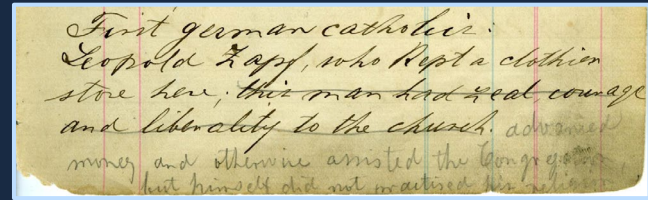 First german catholic:
Leopold Zapf, who Kept a clothier
store here; this man had zeal, courage
and liberality to the church. advanced
money and otherwise assisted the Congregation,
but himself did not practised his religion